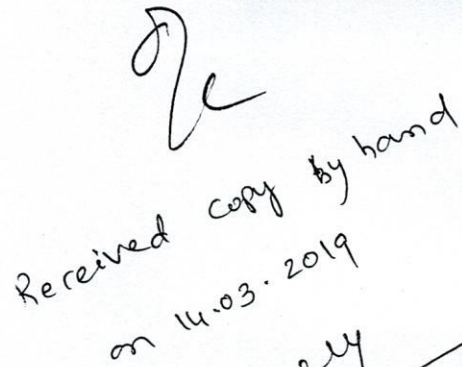 Received copy by hand
on 14.03.2019